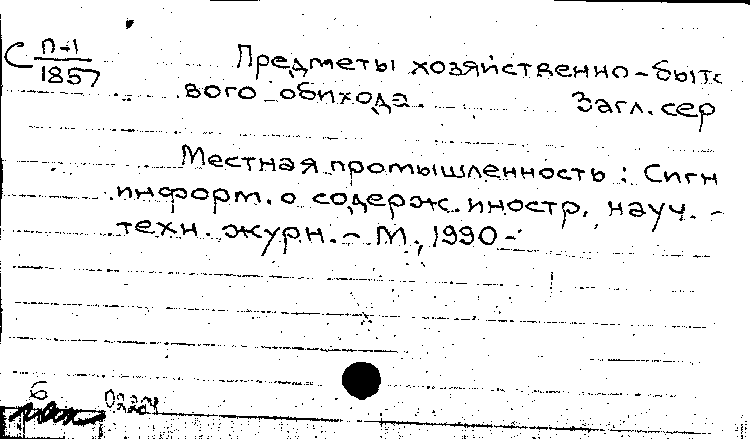 С П-1
1857
Предметы хозяйственно-бытс
вого обихода. Загл. сер
Местная промышленность : Сигн
информ. о содерж. иностр. науч. -
техн. журн. - М., 1990 -
б
02204